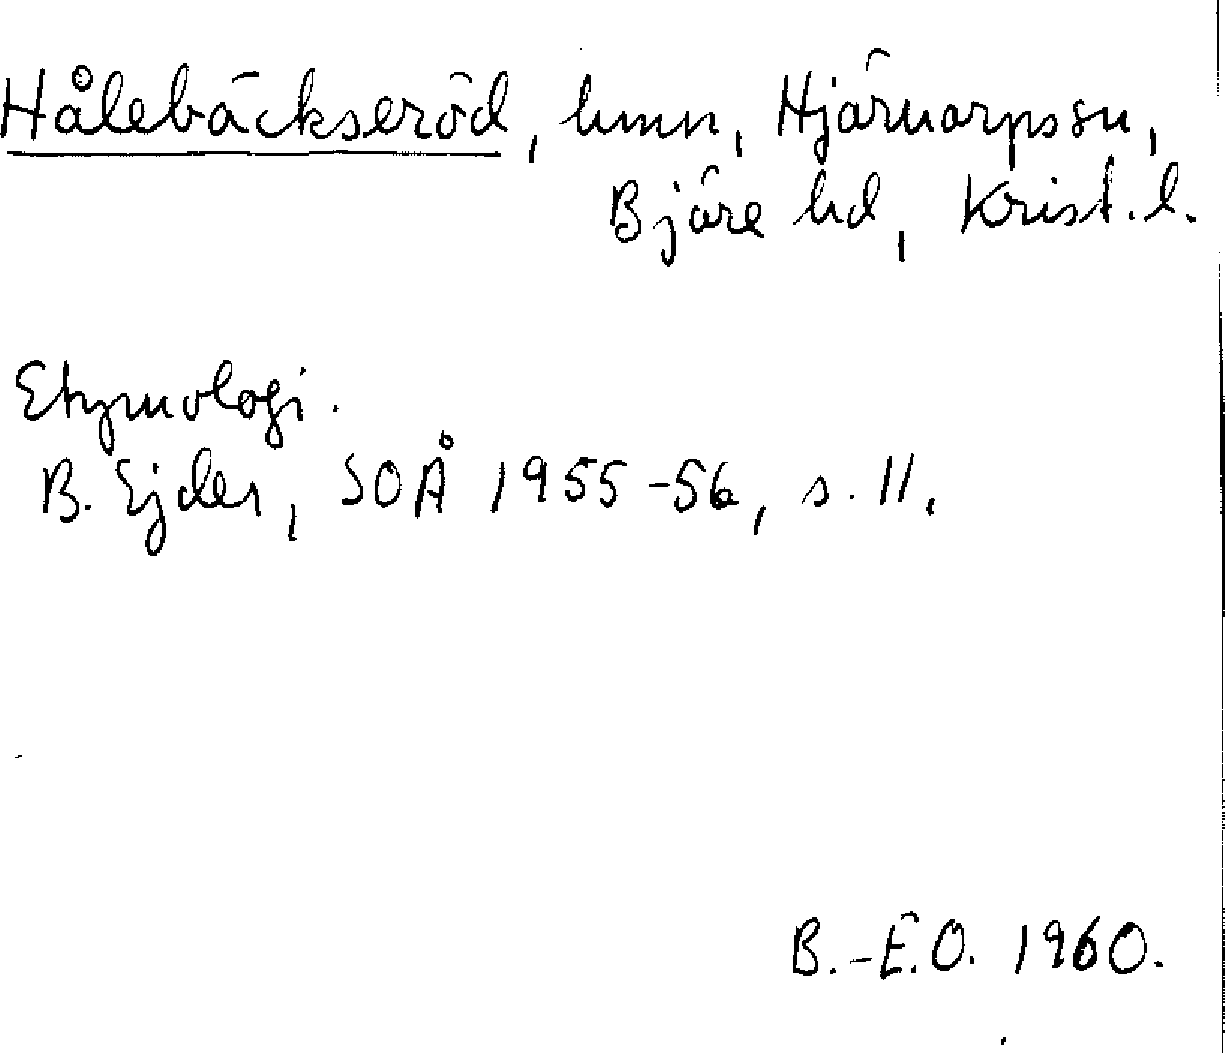 Hålebäckseröd, hmn, Hjärnarps sn,
Bjäre hd, Krist. l.
Etymologi.
B. Ejder, SOÅ 1955-56, s. 11.
B.-E.O. 1960.